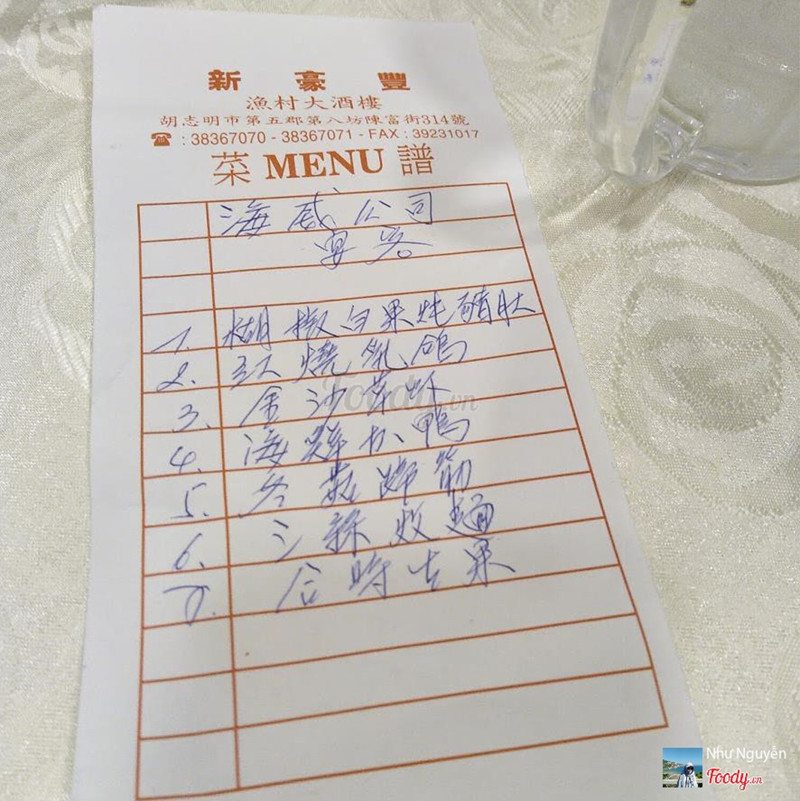 新豪豐
漁村大酒樓
胡志明市第五郡第八坊陳富街314號
☎ : 38367070 - 38367071 - FAX : 39231017
菜 MENU 譜
海威公司
宴客
1. 胡椒白果炖豬肚
2. 紅燒乳鴿
3. 金沙蝦
4. 海鮮扒鴨
5. 冬菇蹄筋
6. 三絲炆麵
7. 合時生果
Foody.vn
Như Nguyễn
Foody.vn